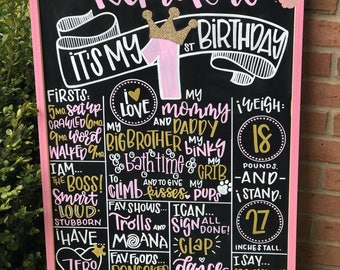 IT'S MY 1ST BIRTHDAY
FIRSTS:
5MO. SAT UP
CRAWLED 6MO.
9MO. WORD
WALKED 9MO.
I AM...
THE BOSS!
Smart
LOUD
STUBBORN
I HAVE...
I LOVE
MY mommy
AND DADDY
MY BIG BROTHER
MY BINKY
Bath time
MY CRIB
TO CLIMB
AND TO GIVE kisses
MY PUPS
FAV SHOWS...
Trolls
AND
MOANA
FAV FOODS...
I CAN...
SIGN ALL DONE!
Clap
dance
I WEIGH:
18
POUNDS.
-AND-
I STAND
27
INCHES TALL.
I SAY...